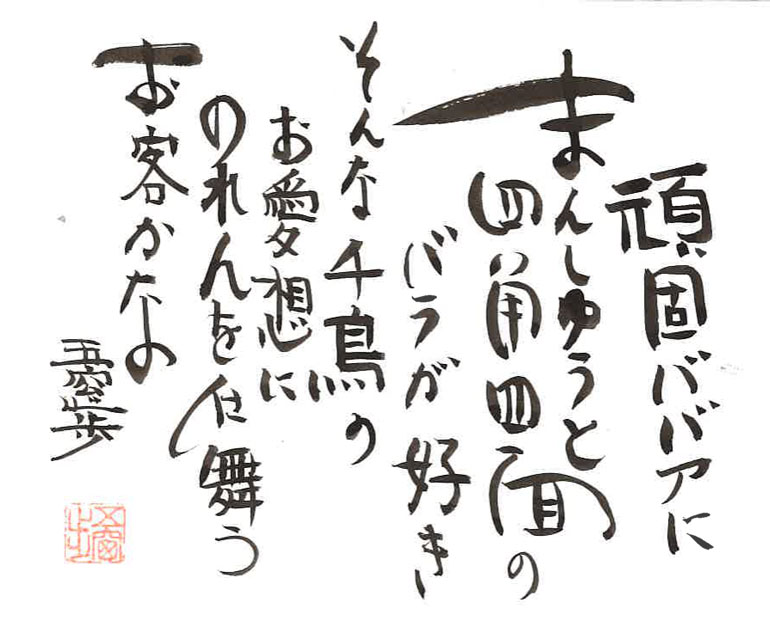 頑固ババアに
まんしゅうと
四角四面の
バラが好き
そんな千鳥の
お愛想に
のれんを仕舞う
お客かなの